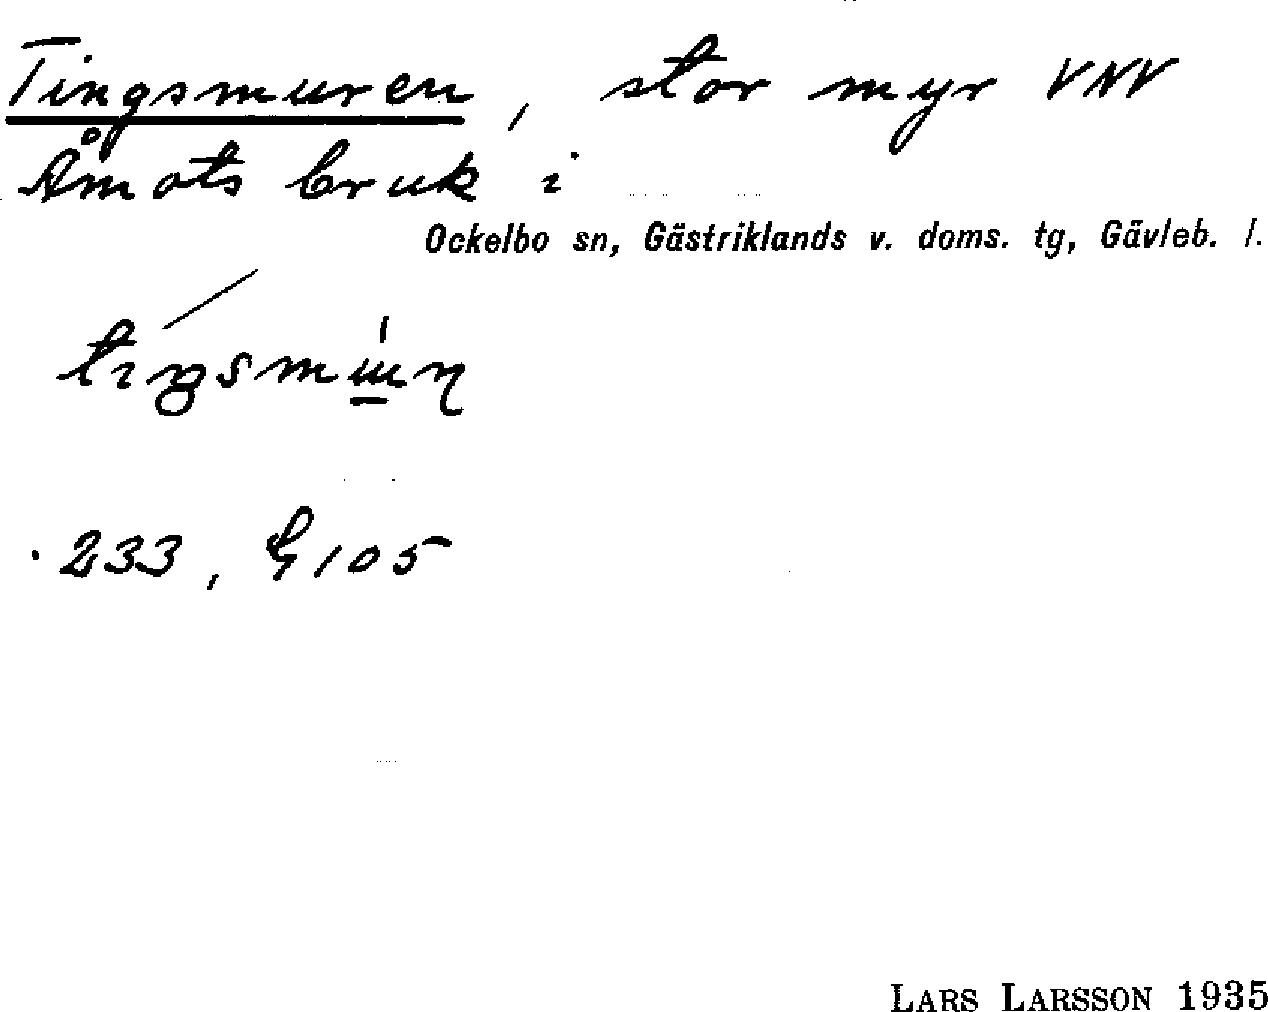 Tingsmuren, stor myr VNV
Åmots bruk i
Ockelbo sn, Gästriklands v. doms. tg, Gävleb. l.
233, G 105
LARS LARSSON 1935